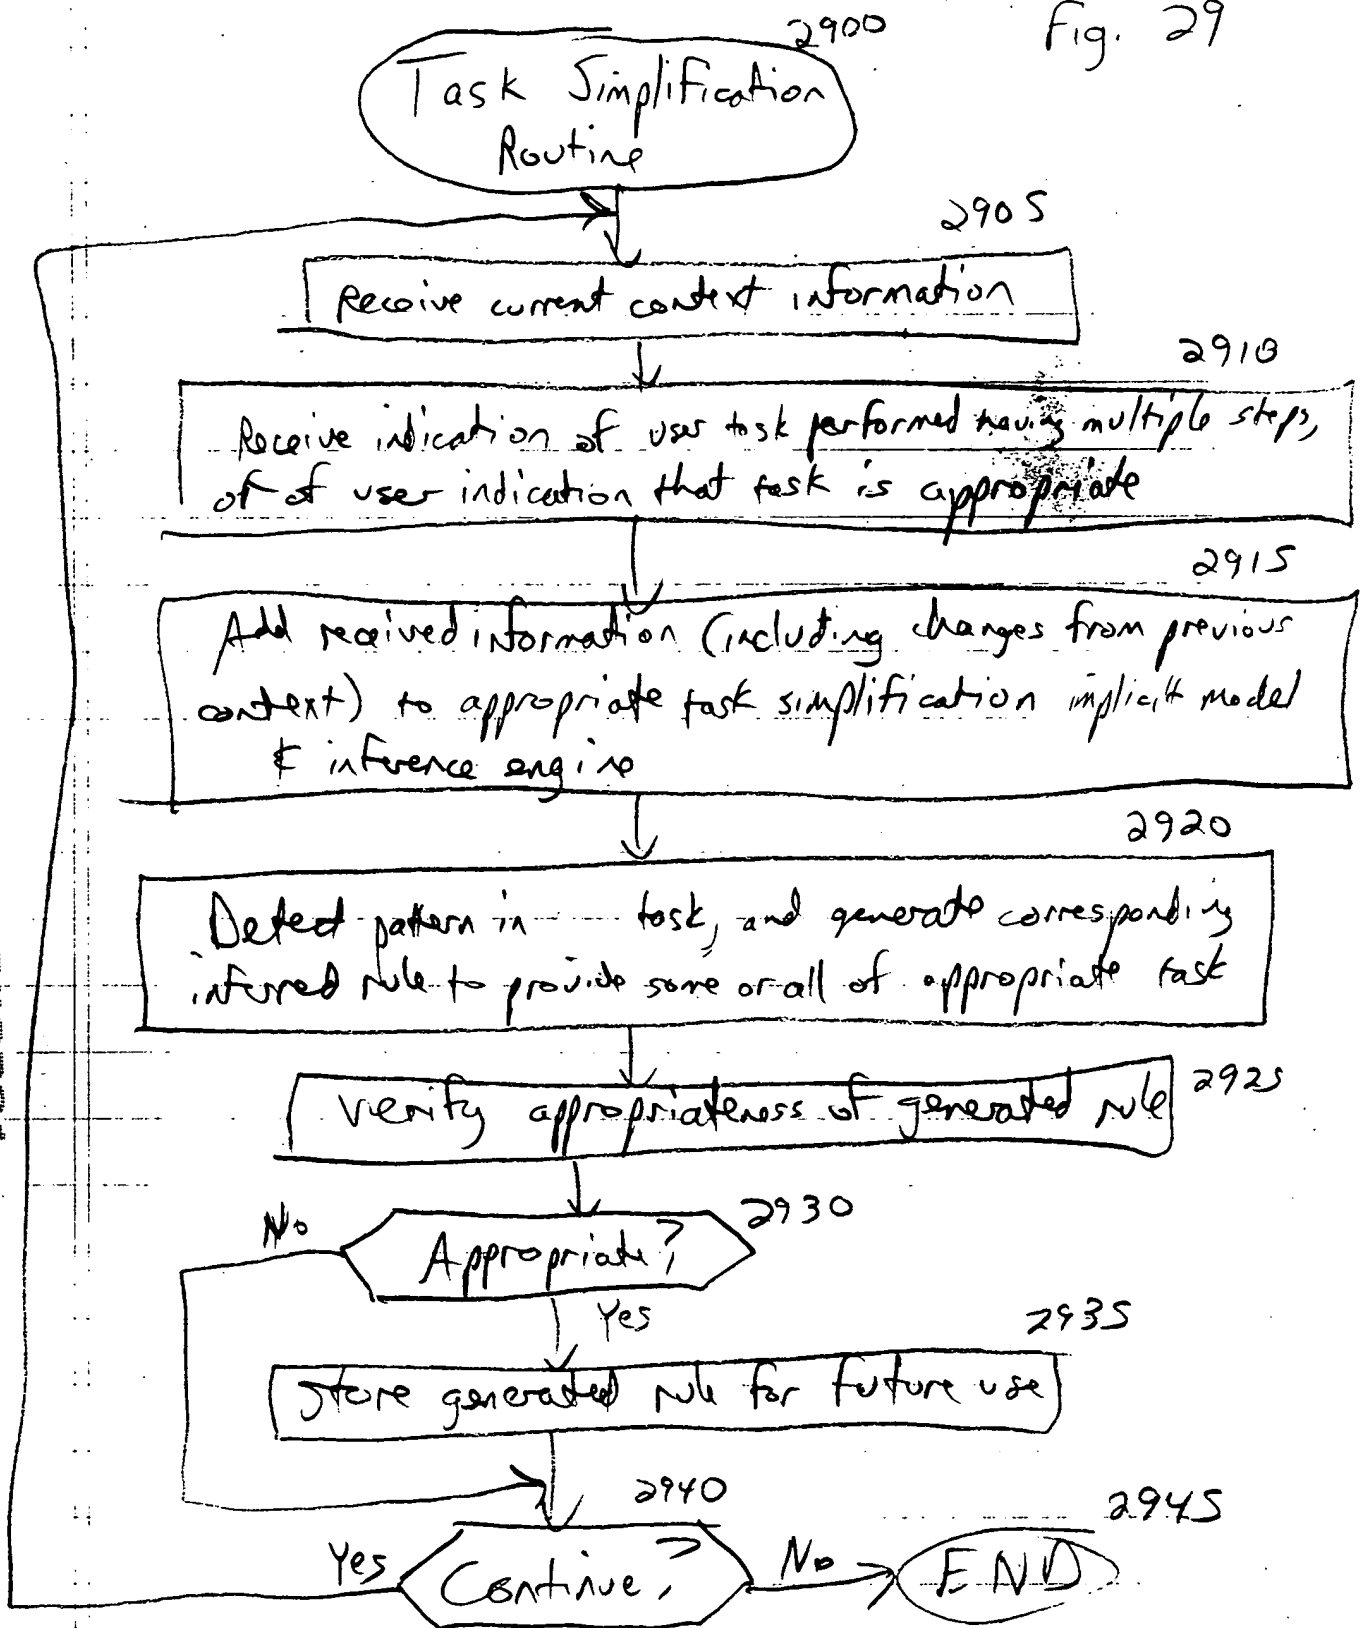 Fig. 29
2900
Task Simplification
Routine
2905
Receive current context information
2910
Receive indication of user task performed having multiple steps,
or of user indication that task is appropriate
2915
Add received information (including changes from previous
context) to appropriate task simplification implicit model
& inference engine
2920
Detect pattern in task, and generate corresponding
inferred rule to provide some or all of appropriate task
2925
Verify appropriateness of generated rule
2930
No
Appropriate?
Yes
2935
Store generated rule for future use
2940
2945
Yes
Continue?
No
END